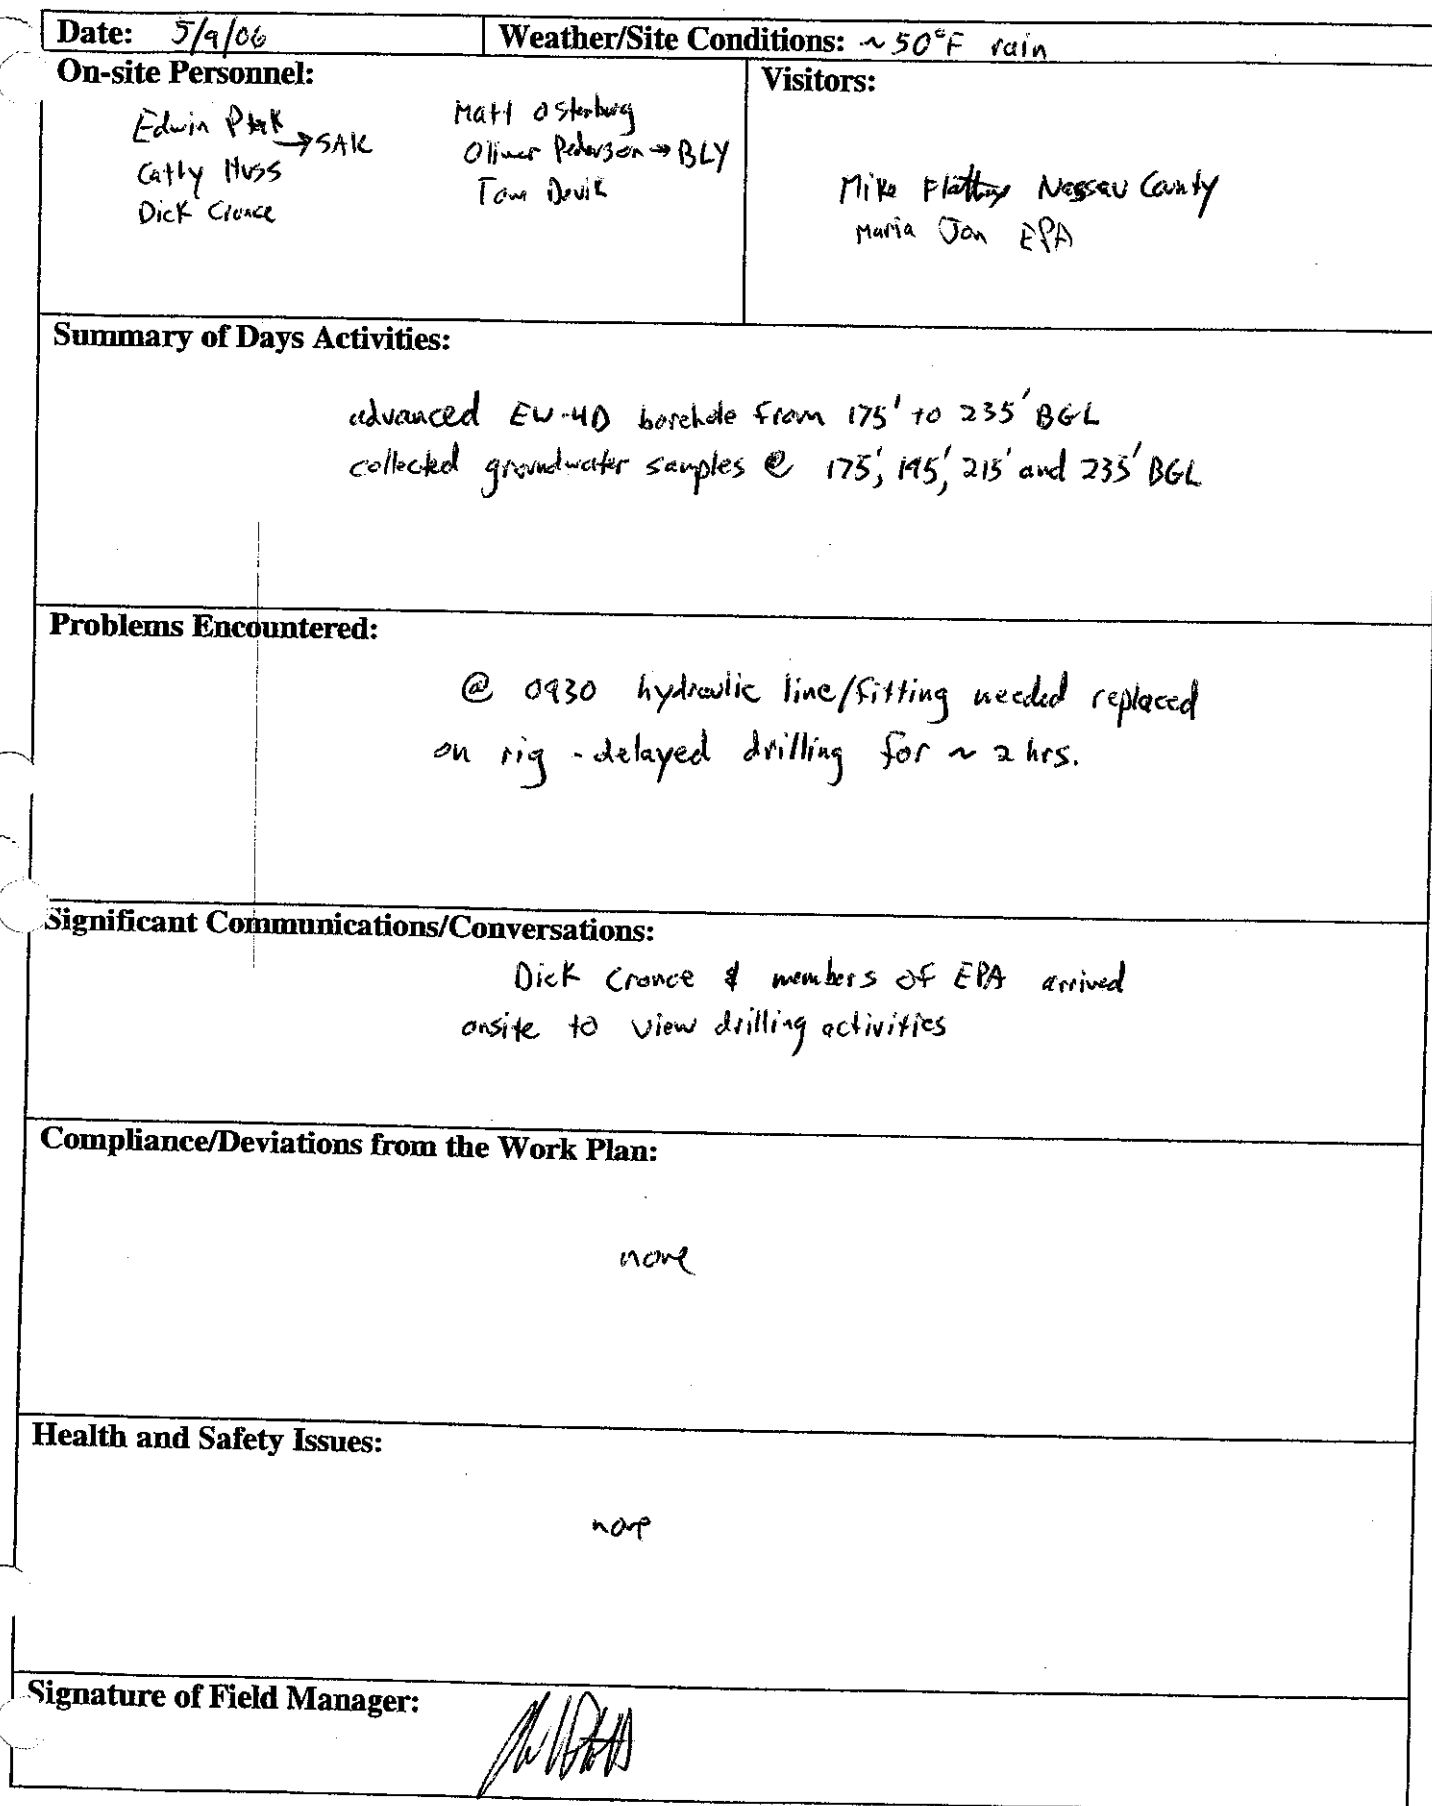 Date: 5/9/06
Weather/Site Conditions: ~50°F rain
On-site Personnel:
Edwin Ptak
→ SAK
Cathy Huss
Dick Cronce
Matt Ostenburg
Oliver Pederson → BLY
Tom Devik
Visitors:
Mike Nassau County
Maria Jon EPA
Summary of Days Activities:
advanced EW-4D borehole from 175' to 235' BGL
collected groundwater samples @ 175', 195', 215' and 235' BGL
Problems Encountered:
@ 0930 hydraulic line/fitting needed replaced
on rig - delayed drilling for ~ 2 hrs.
Significant Communications/Conversations:
Dick Cronce & members of EPA arrived
onsite to view drilling activities
Compliance/Deviations from the Work Plan:
none
Health and Safety Issues:
none
Signature of Field Manager: